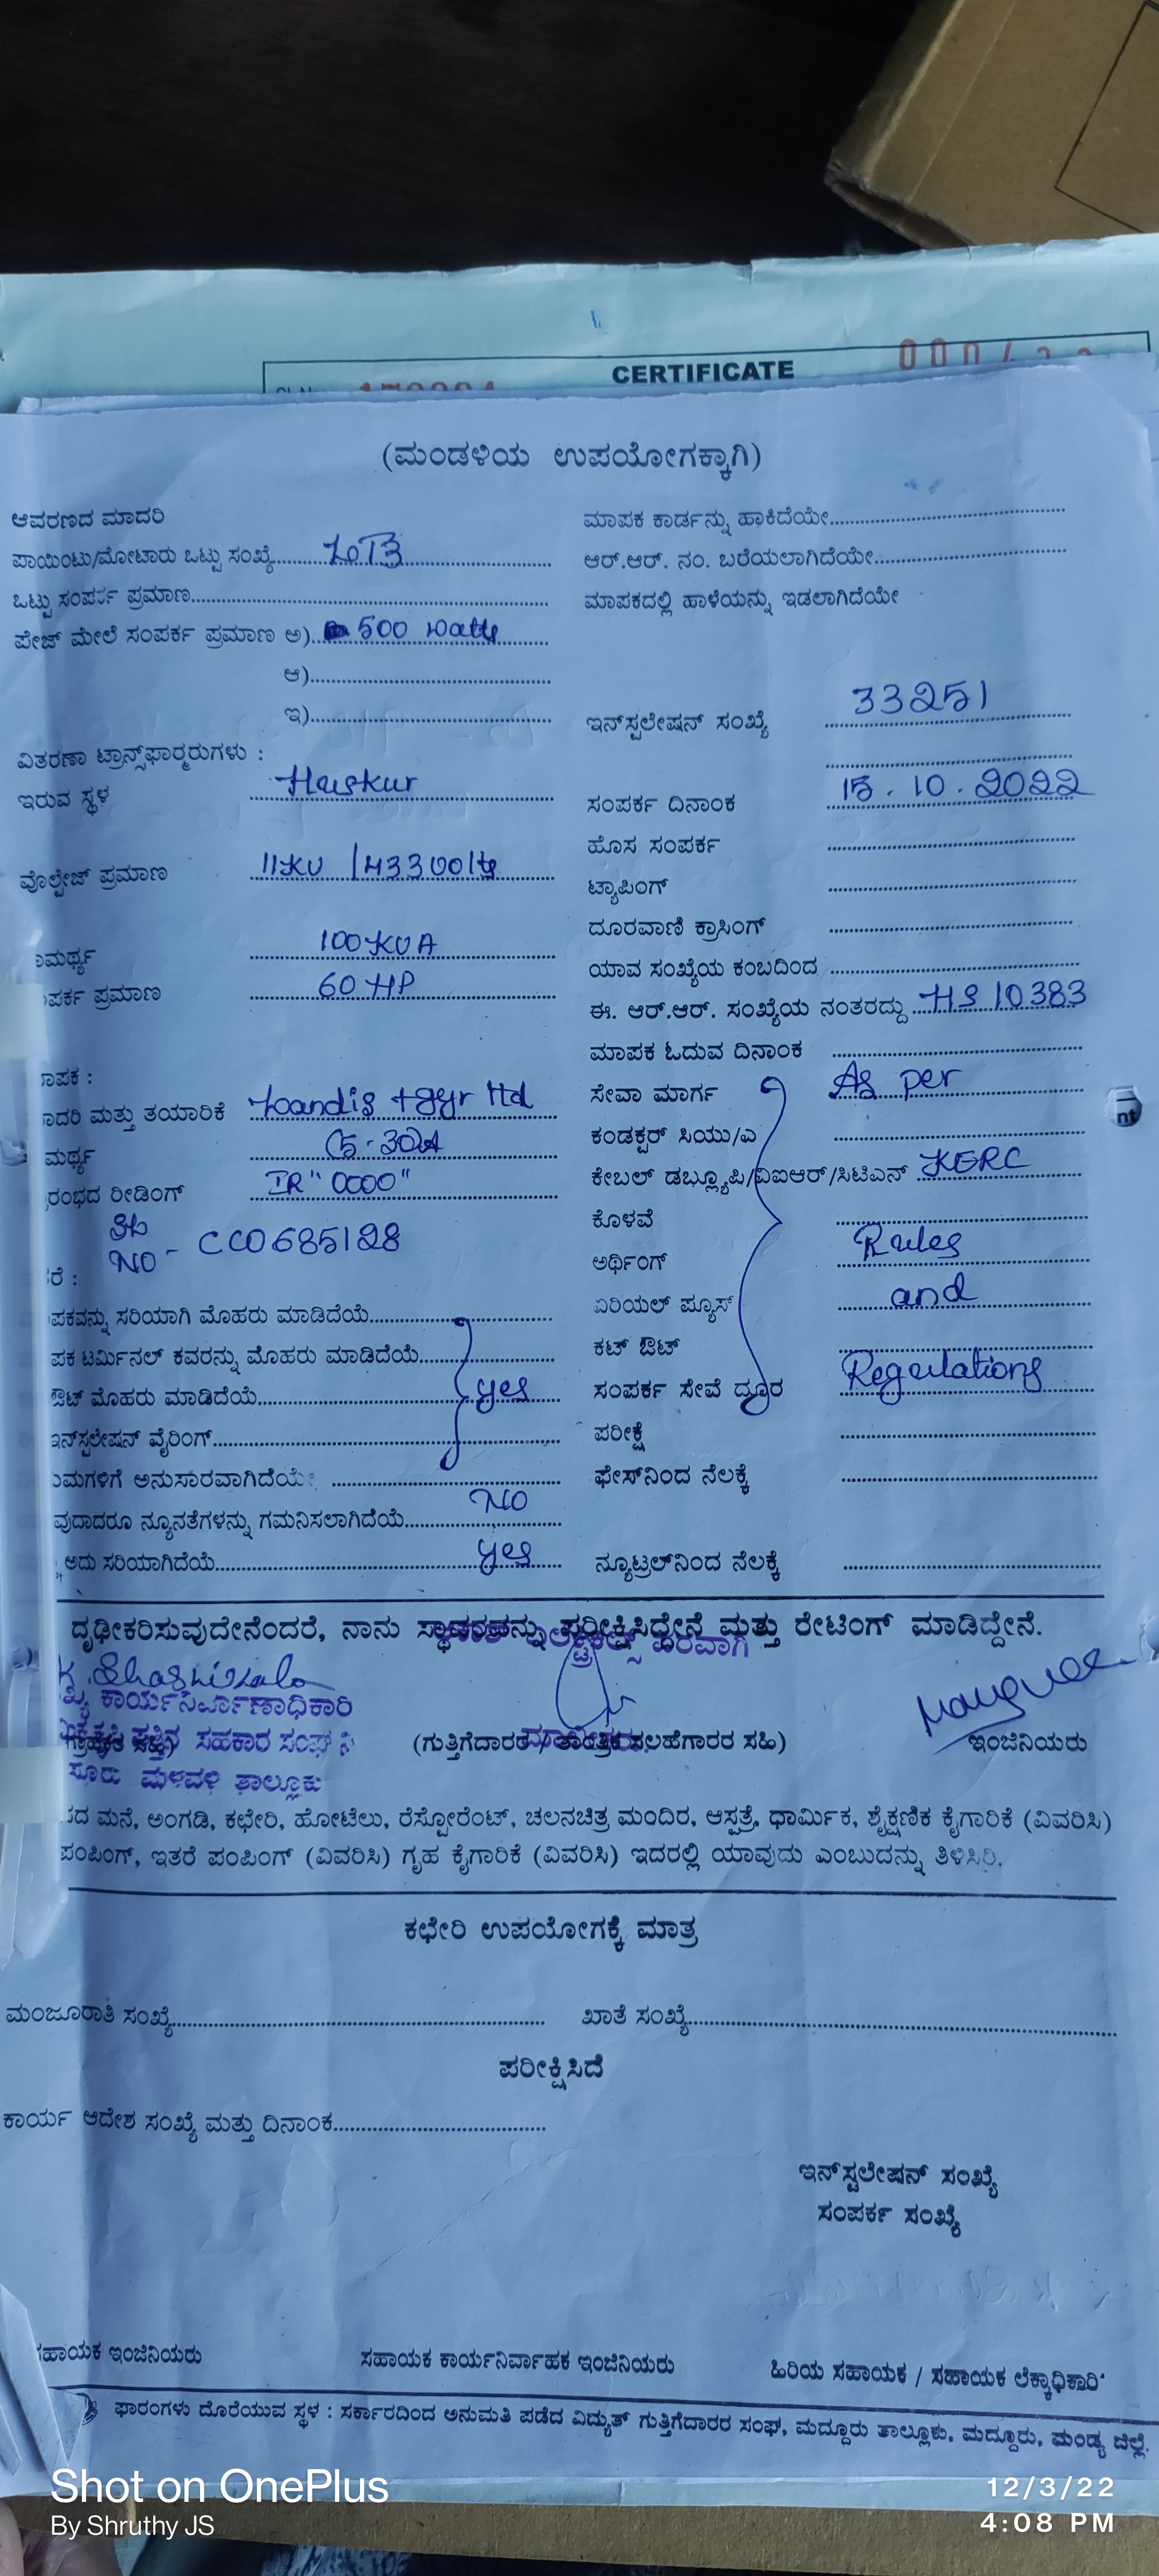 CERTIFICATE
(ಮಂಡಳಿಯ ಉಪಯೋಗಕ್ಕಾಗಿ)
ಆವರಣದ ಮಾದರಿ
ಪಾಯಿಂಟು/ಮೋಟಾರು ಒಟ್ಟು ಸಂಖ್ಯೆ
ಒಟ್ಟು ಸಂಪರ್ಕ ಪ್ರಮಾಣ
ಪೇಜ್ ಮೇಲೆ ಸಂಪರ್ಕ ಪ್ರಮಾಣ ಅ) 500 watts
ಆ)
ಇ)
ವಿತರಣಾ ಟ್ರಾನ್ಸ್‌ಫಾರ್ಮರುಗಳು :
ಇರುವ ಸ್ಥಳ
ವೊಲ್ಟೇಜ್ ಪ್ರಮಾಣ 11KV / 433 Volts
ಮರ್ಥ್ಯ 100 KVA
ಪರ್ಕ ಪ್ರಮಾಣ 60 HP
ಾಪಕ :
ಾದರಿ ಮತ್ತು ತಯಾರಿಕೆ Landis + gyr ltd
ಮರ್ಥ್ಯ
ರಂಭದ ರೀಡಿಂಗ್ IR "0000"
NO - CC0685128
ರೆ :
ಪಕವನ್ನು ಸರಿಯಾಗಿ ಮೊಹರು ಮಾಡಿದೆಯೆ
ಪಕ ಟರ್ಮಿನಲ್ ಕವರನ್ನು ಮೊಹರು ಮಾಡಿದೆಯೆ
ಔಟ್ ಮೊಹರು ಮಾಡಿದೆಯೆ yes
ಇನ್‌ಸ್ಟಲೇಷನ್ ವೈರಿಂಗ್
ುಮಗಳಿಗೆ ಅನುಸಾರವಾಗಿದೆಯೆ
ವುದಾದರೂ ನ್ಯೂನತೆಗಳನ್ನು ಗಮನಿಸಲಾಗಿದೆಯೆ NO
ಅದು ಸರಿಯಾಗಿದೆಯೆ yes
ಮಾಪಕ ಕಾರ್ಡನ್ನು ಹಾಕಿದೆಯೇ
ಆರ್.ಆರ್. ನಂ. ಬರೆಯಲಾಗಿದೆಯೇ
ಮಾಪಕದಲ್ಲಿ ಹಾಳೆಯನ್ನು ಇಡಲಾಗಿದೆಯೇ
ಇನ್‌ಸ್ಟಲೇಷನ್ ಸಂಖ್ಯೆ 33251
ಸಂಪರ್ಕ ದಿನಾಂಕ 15.10.2022
ಹೊಸ ಸಂಪರ್ಕ
ಟ್ಯಾಪಿಂಗ್
ದೂರವಾಣಿ ಕ್ರಾಸಿಂಗ್
ಯಾವ ಸಂಖ್ಯೆಯ ಕಂಬದಿಂದ
ಈ. ಆರ್.ಆರ್. ಸಂಖ್ಯೆಯ ನಂತರದ್ದು HS 10383
ಮಾಪಕ ಓದುವ ದಿನಾಂಕ
ಸೇವಾ ಮಾರ್ಗ As per
ಕಂಡಕ್ಟರ್ ಸಿಯು/ಎ
ಕೇಬಲ್ ಡಬ್ಲ್ಯೂಪಿ/ವಿಐಆರ್/ಸಿಟಿಎಸ್ KERC
ಕೊಳವೆ
ಅರ್ಥಿಂಗ್ Rules
ಏರಿಯಲ್ ಪ್ಯೂಸ್ and
ಕಟ್ ಔಟ್
ಸಂಪರ್ಕ ಸೇವೆ ದ್ದೂರ Regulations
ಪರೀಕ್ಷೆ
ಫೇಸ್‌ನಿಂದ ನೆಲಕ್ಕೆ
ನ್ಯೂಟ್ರಲ್‌ನಿಂದ ನೆಲಕ್ಕೆ
ದೃಢೀಕರಿಸುವುದೇನೆಂದರೆ, ನಾನು ಸ್ಥಾವರವನ್ನು ಪರೀಕ್ಷಿಸಿದ್ದೇನೆ ಮತ್ತು ರೇಟಿಂಗ್ ಮಾಡಿದ್ದೇನೆ.
ಕಾರ್ಯನಿರ್ವಾಹಣಾಧಿಕಾರಿ
ಸಹಕಾರ ಸಂಘ ನಿ
ಮಳವಳ್ಳಿ ತಾಲ್ಲೂಕು
(ಗುತ್ತಿಗೆದಾರರ / ತಾಂತ್ರಿಕ ಸಲಹೆಗಾರರ ಸಹಿ)
ಇಂಜಿನಿಯರು
ದ ಮನೆ, ಅಂಗಡಿ, ಕಛೇರಿ, ಹೋಟೆಲು, ರೆಸ್ಟೋರೆಂಟ್, ಚಲನಚಿತ್ರ ಮಂದಿರ, ಆಸ್ಪತ್ರೆ, ಧಾರ್ಮಿಕ, ಶೈಕ್ಷಣಿಕ ಕೈಗಾರಿಕೆ (ವಿವರಿಸಿ)
ಪಂಪಿಂಗ್, ಇತರೆ ಪಂಪಿಂಗ್ (ವಿವರಿಸಿ) ಗೃಹ ಕೈಗಾರಿಕೆ (ವಿವರಿಸಿ) ಇದರಲ್ಲಿ ಯಾವುದು ಎಂಬುದನ್ನು ತಿಳಿಸಿರಿ.
ಕಛೇರಿ ಉಪಯೋಗಕ್ಕೆ ಮಾತ್ರ
ಮಂಜೂರಾತಿ ಸಂಖ್ಯೆ
ಖಾತೆ ಸಂಖ್ಯೆ
ಪರೀಕ್ಷಿಸಿದೆ
ಕಾರ್ಯ ಆದೇಶ ಸಂಖ್ಯೆ ಮತ್ತು ದಿನಾಂಕ
ಇನ್‌ಸ್ಟಲೇಷನ್ ಸಂಖ್ಯೆ
ಸಂಪರ್ಕ ಸಂಖ್ಯೆ
ಸಹಾಯಕ ಇಂಜಿನಿಯರು
ಸಹಾಯಕ ಕಾರ್ಯನಿರ್ವಾಹಕ ಇಂಜಿನಿಯರು
ಹಿರಿಯ ಸಹಾಯಕ / ಸಹಾಯಕ ಲೆಕ್ಕಾಧಿಕಾರಿ
ಫಾರಂಗಳು ದೊರೆಯುವ ಸ್ಥಳ : ಸರ್ಕಾರದಿಂದ ಅನುಮತಿ ಪಡೆದ ವಿದ್ಯುತ್ ಗುತ್ತಿಗೆದಾರರ ಸಂಘ, ಮದ್ದೂರು ತಾಲ್ಲೂಕು, ಮದ್ದೂರು, ಮಂಡ್ಯ ಜಿಲ್ಲೆ.
Shot on OnePlus
By Shruthy JS
12/3/22
4:08 PM